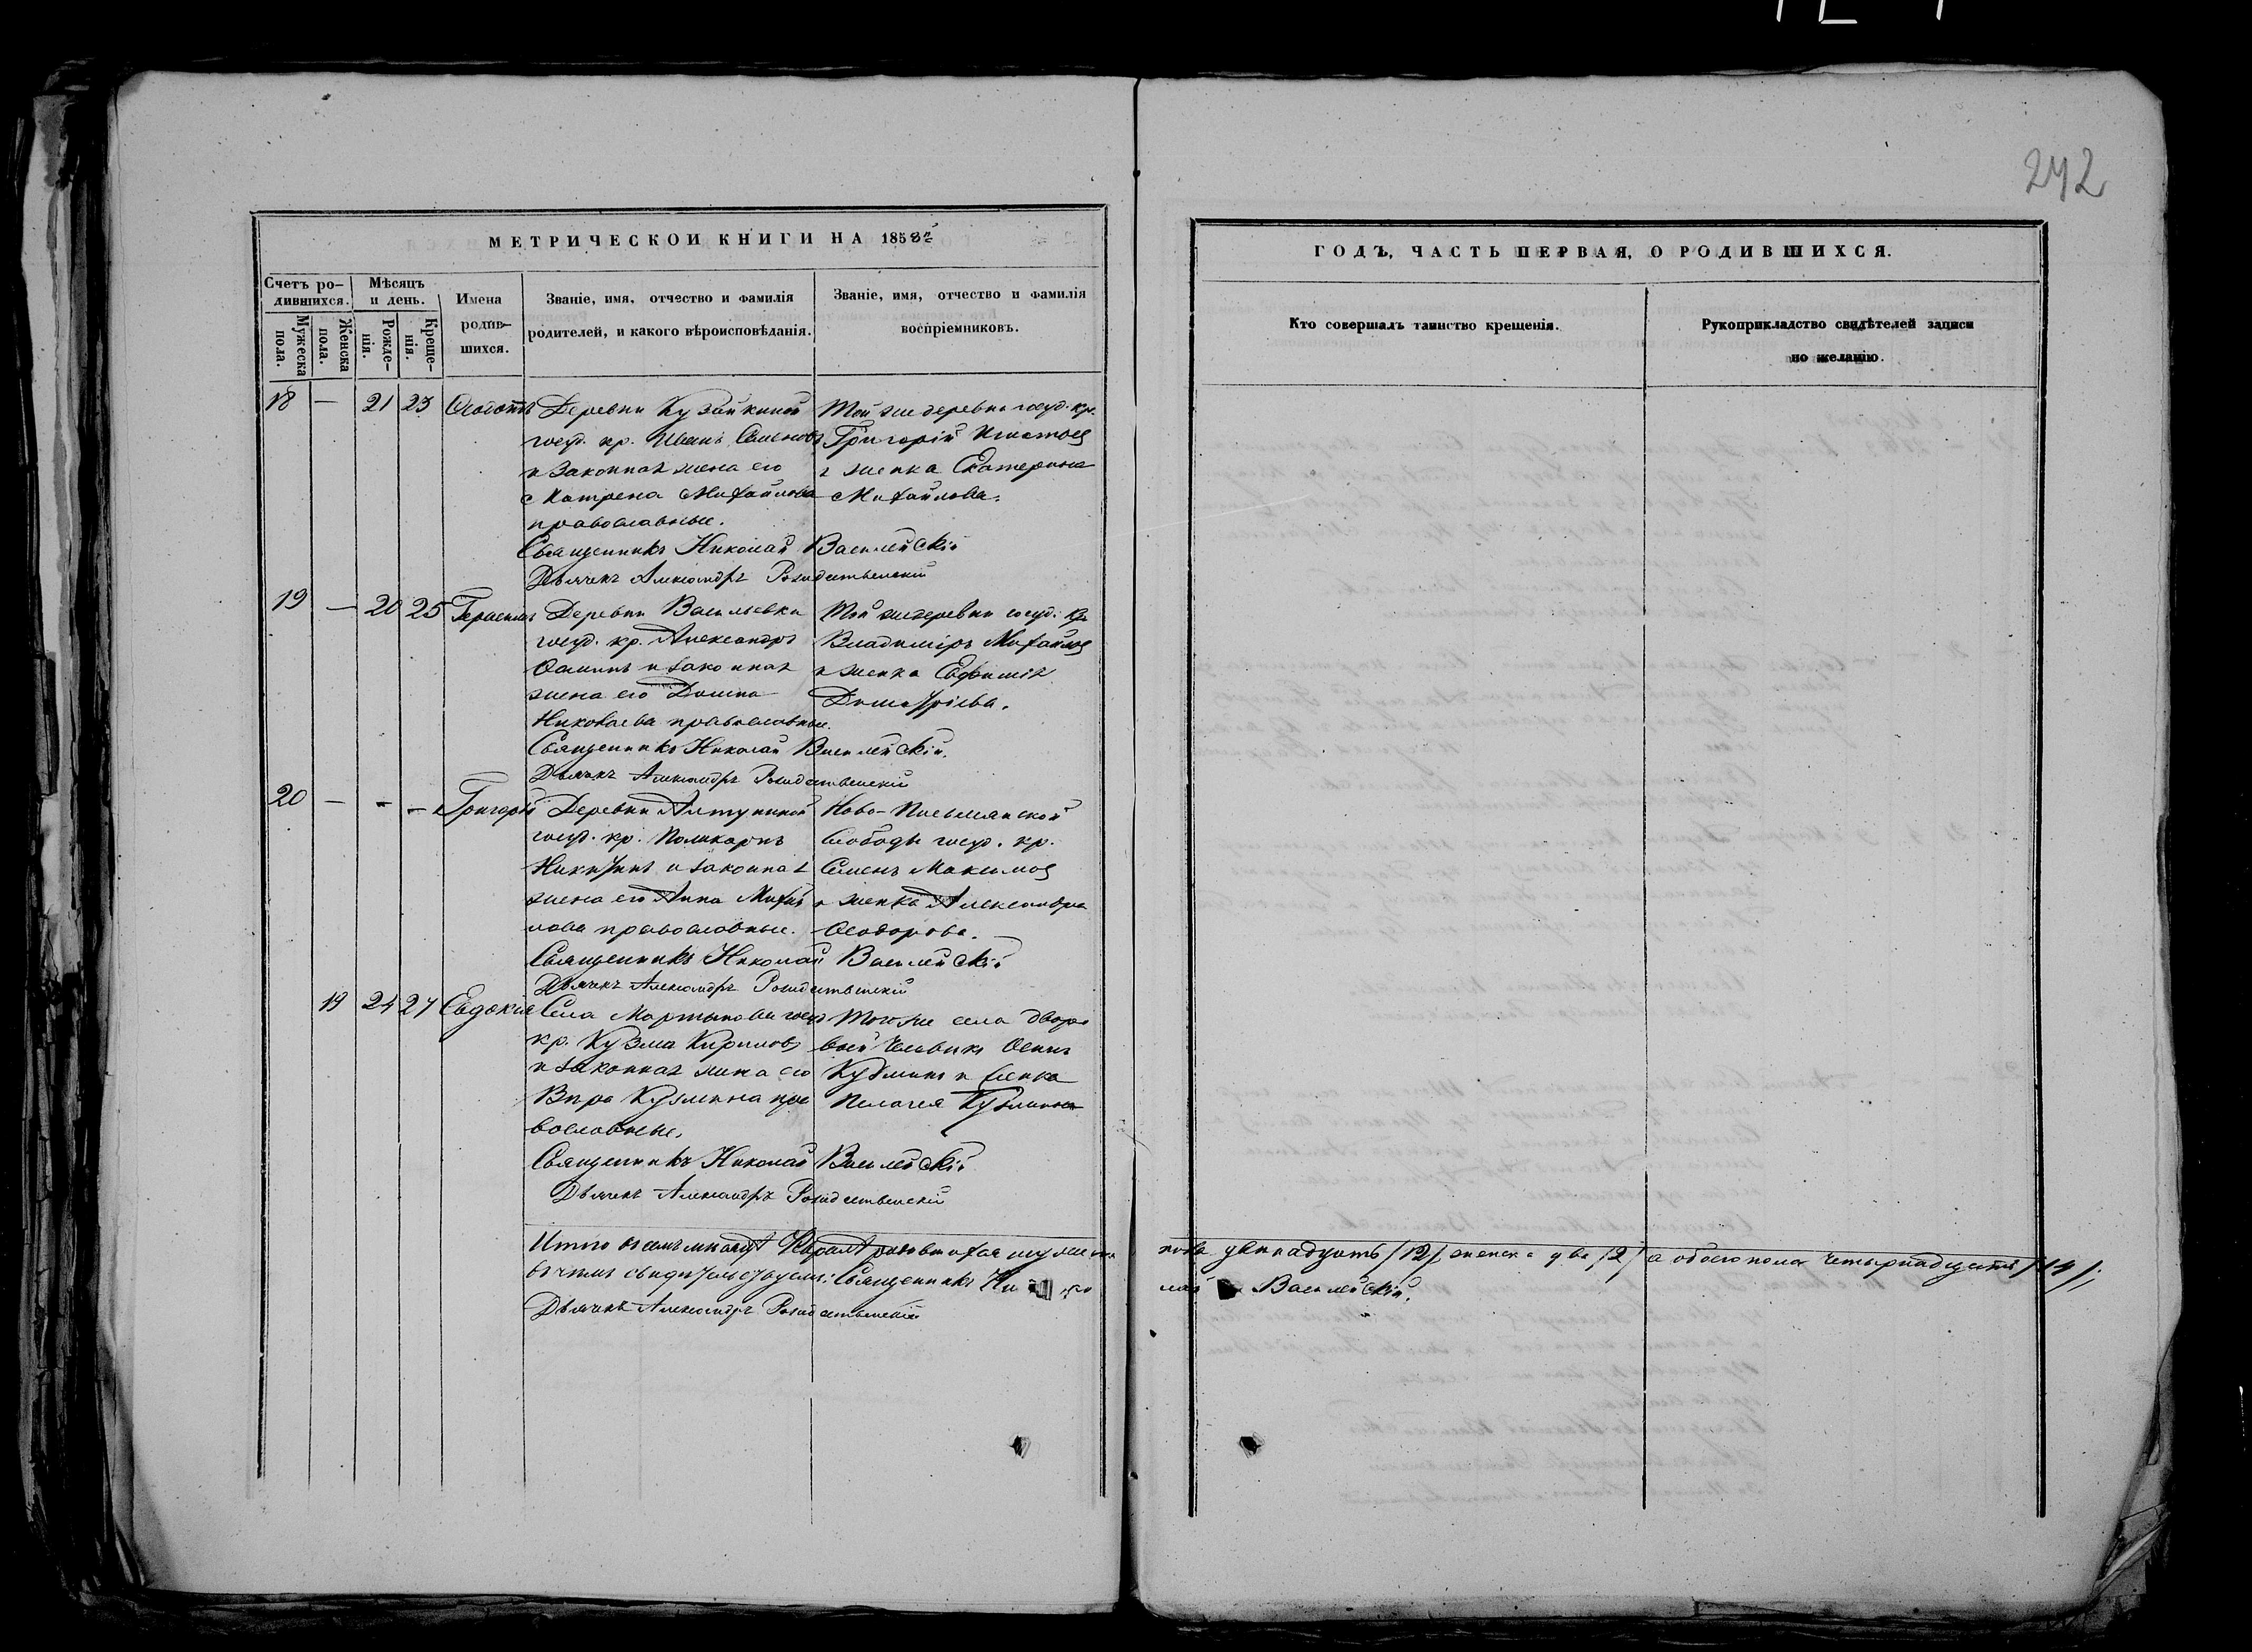 242
МЕТРИЧЕСКОЙ КНИГИ НА 1858
ГОДЪ, ЧАСТЬ ПЕРВАЯ, О РОДИВШИХСЯ.
Счетъ ро-
дившихся.
Мужеска
пола.
Женска
пола.
Мѣсяцъ
и день.
Рожде-
нія.
Креще-
нія.
Имена
родив-
шихся.
Званіе, имя, отчество и фамилія
родителей, и какого вѣроисповѣданія.
Званіе, имя, отчество и фамилія
воспріемниковъ.
Кто совершалъ таинство крещенія.
Рукоприкладство свидѣтелей записи
по желанію.
18 — 21 23 Ѳеодотъ
Деревни Кузайкиной
госуд. кр. Иванъ Семеновъ
и законная жена его
Матрена Михайлова
православные.
Той же деревни госуд. кр.
Григорій Игнатов
и женка Екатерина
Михайлова.
Священникъ Николай Василейскій
Дьячекъ Александръ Рождественскій
19 — 20 25 Герасимъ
Деревни Васильевки
госуд. кр. Александръ
Осиповъ и законная
жена его Домна
Николаева православные.
Той же деревни госуд. кр.
Владиміръ Михайлов
и женка Евфимія
Димитріева.
Священникъ Николай Василейскій.
Дьячекъ Александръ Рождественскій
20 — - — Григорій
Деревни Алтуниной
госуд. кр. Поликарпъ
Никитинъ и законная
жена его Анна Михай
лова православные.
Ново-Письмянской
слободы госуд. кр.
Семенъ Максимов
и женка Александра
Ѳеодорова.
Священникъ Николай Василейскій
Дьячекъ Александръ Рождественскій
19 24 27 Евдокія
Села Мартынова госуд
кр. Кузма Кириловъ
и законная жена его
Вѣра Кузмина пра
вославные.
Того же села дворо
вой человѣкъ Осипъ
Кузминъ и женка
Пелагея Кузмина
Священникъ Николай Василейскій
Дьячекъ Александръ Рождественскій
Итого въ семъ мѣсяцѣ Февралѣ родившихся мужеска пола двенадцать /12/, женска два /2/ а обоего пола четырнадцать /14/;
въ чемъ свидѣтельствуемъ: Священникъ Николай Василейскій.
Дьячекъ Александръ Рождественскій